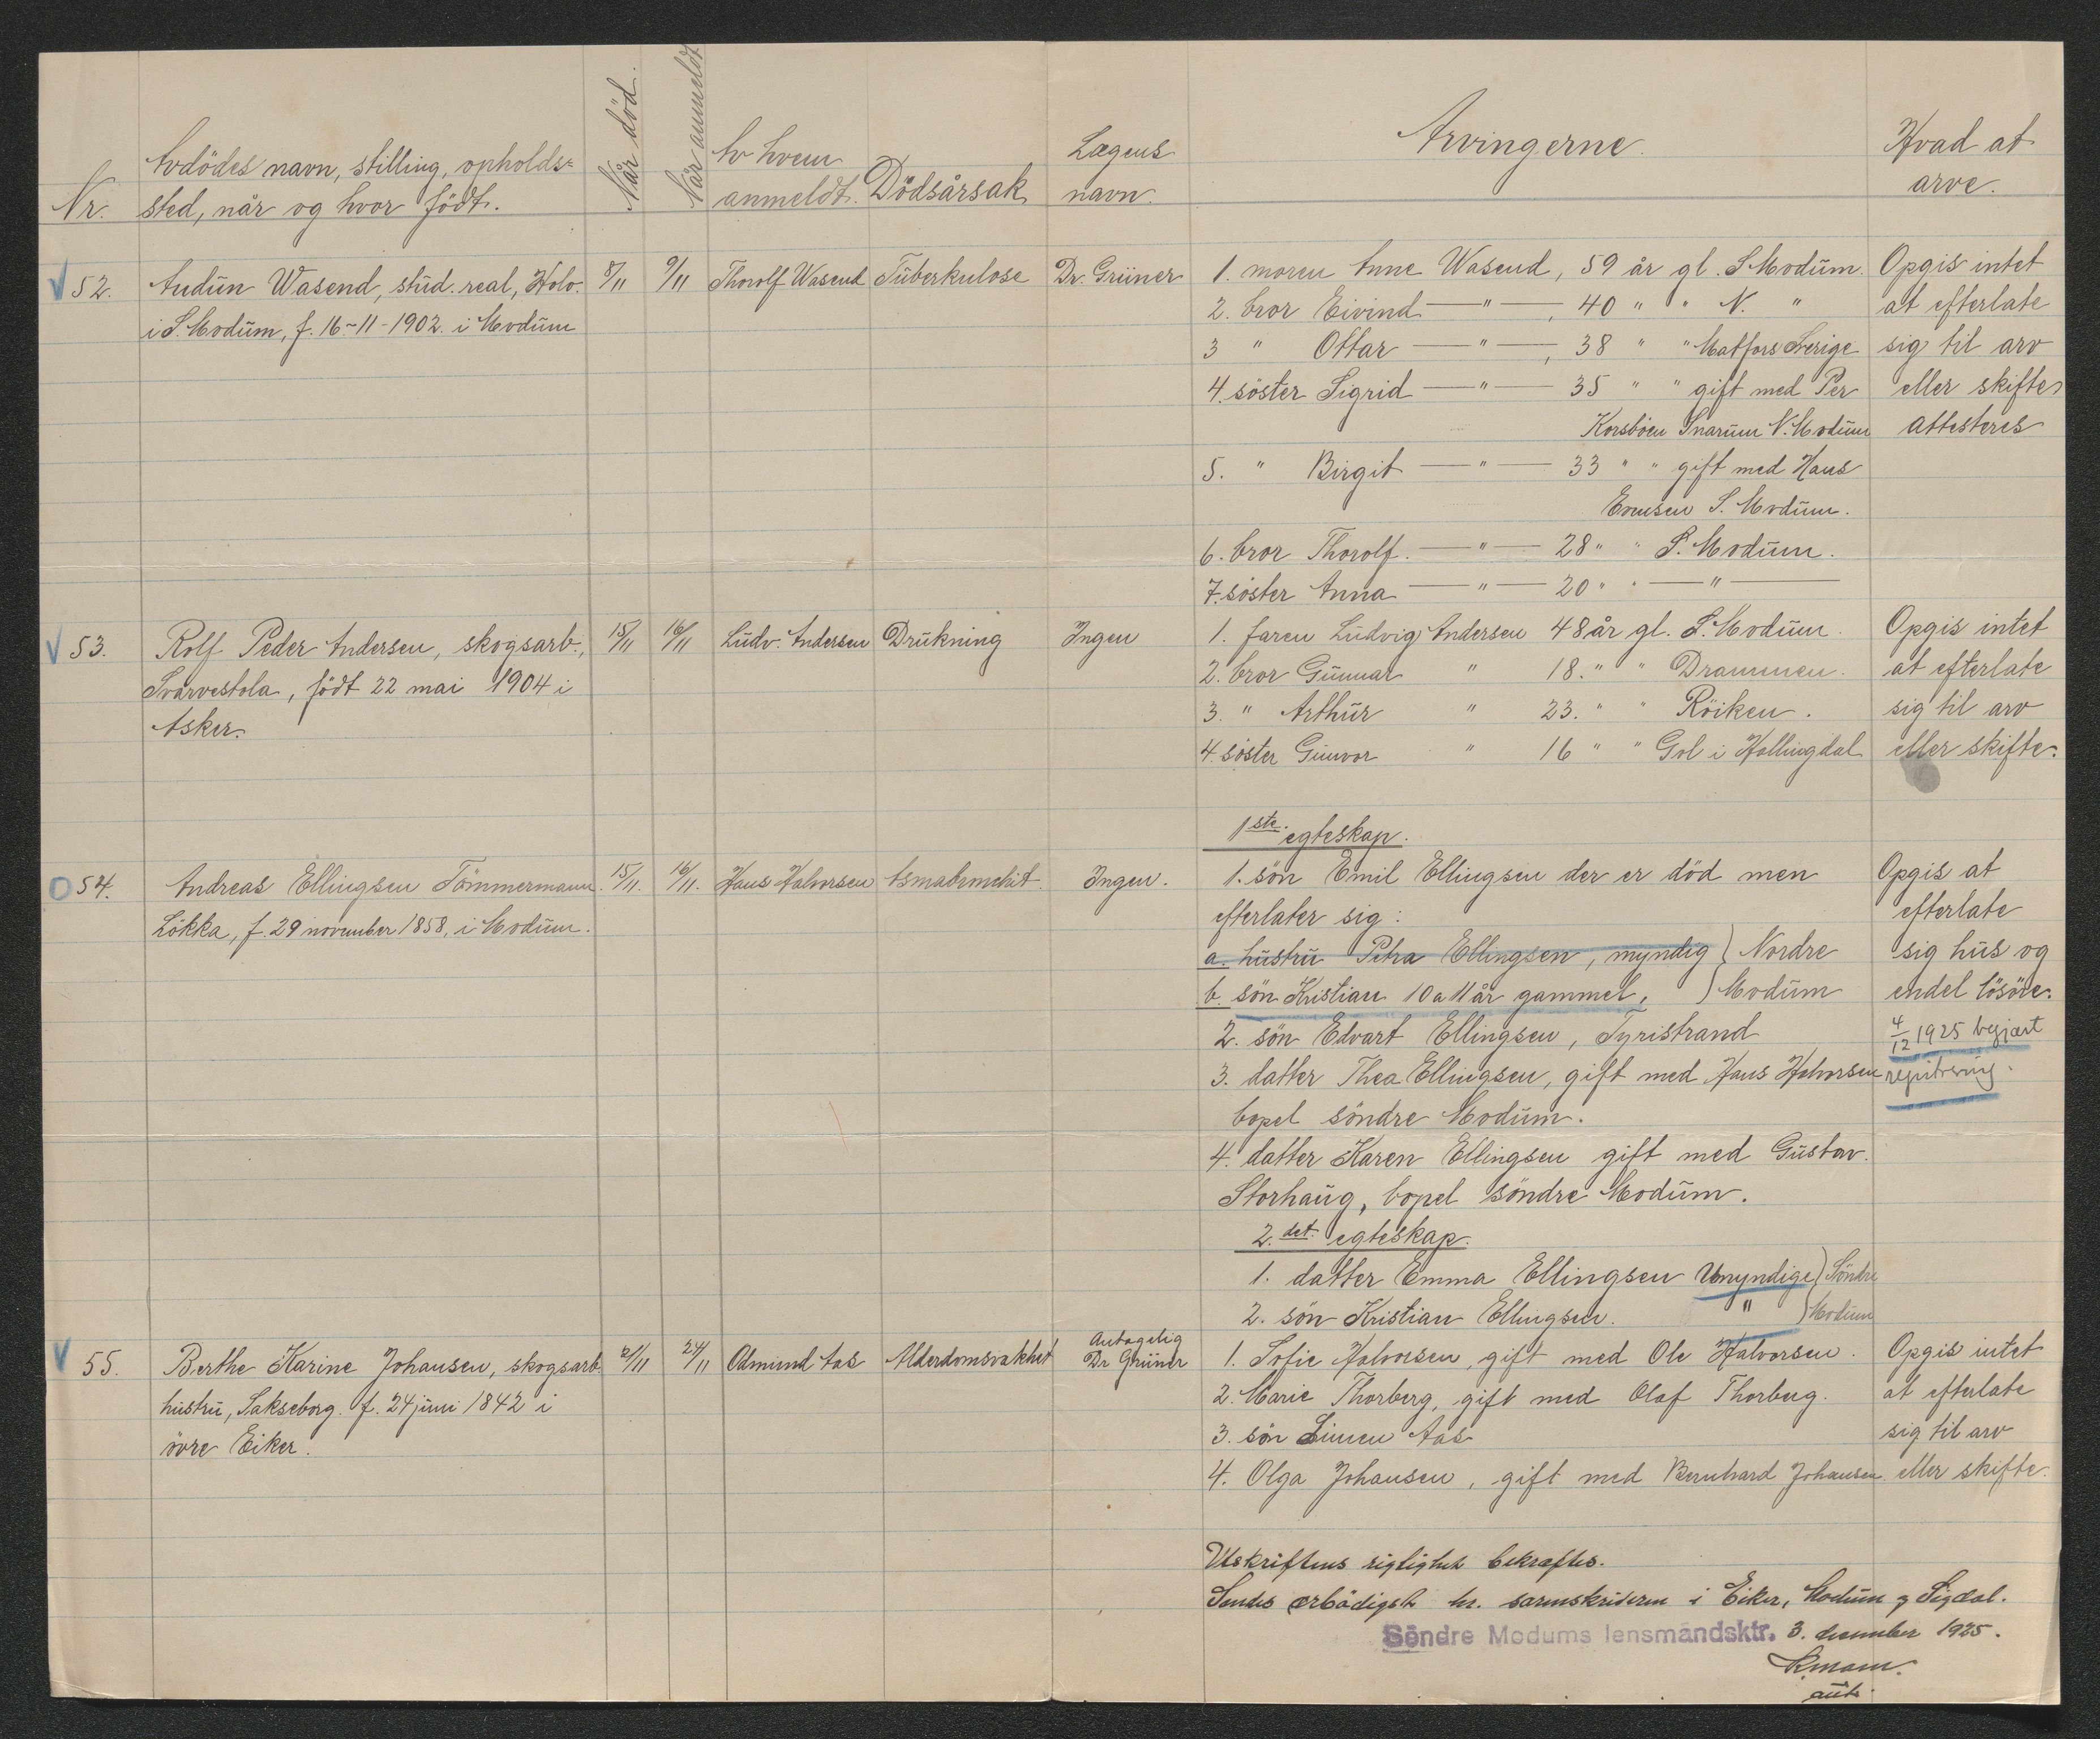 Nr. Avdödes navn, stilling, opholds=
sted, når og hvor födt. Når död. Når anmeldt Av hvem
anmeldt. Dödsårsak Lægens
navn. Arvingerne. Hvad at
arve.
52. Audun Wasend, stud. real, Holv. 8/11 9/11 Thorolf Wasend Tuberkulose Dr. Grüner 1. moren Anne Wasend, 59 år gl. S. Modum. Opgis intet
i S. Modum, f. 16-11-1902 i Modum 2. bror Eivind —"—, 40 " " N. " at efterlate
3 " Ottar —"—, 38 " " Matfors Sverige sig til arv
4. söster Sigrid —"— 35 " " gift med Per eller skifte
Korsböen Snarum N. Modum attesteres
5. " Birgit —"— 33 " " gift med Hans
Evensen S. Modum.
6. bror Thorolf. —"— 28 " " S. Modum.
7. söster Anna —"— 20 " " —"—
53. Rolf Peder Andersen, skogsarb., 15/11 16/11 Ludv. Andersen Drukning Ingen 1. faren Ludvig Andersen 48 år gl. S. Modum. Opgis intet
Svarvestola, födt 22 mai 1904 i 2. bror Gunnar " 18. " " Drammen. at efterlate
Asker. 3. " Arthur " 23. " " Röiken. sig til arv
4. söster Gunvor " 16 " " Gol i Hallingdal eller skifte.
1ste egteskap.
54. Andreas Ellingsen Tömmermann. 15/11. 16/11. Hans Halvorsen Asmabrnchit. Ingen. 1. sön Emil Ellingsen der er död men Opgis at
Lökka, f. 29 november 1858, i Modum. efterlater sig: efterlate
a. hustru Petra Ellingsen, myndig } Nordre sig hus og
b. sön Kristian 10 a 11 år gammel, } Modum endel lösöre.
2. sön Edvart Ellingsen, Tyristrand 4/12 1925 begjært
3. datter Thea Ellingsen, gift med Hans Halvorsen registrering.
bopel söndre Modum.
4. datter Karen Ellingsen gift med Gustav.
Storhaug, bopel söndre Modum.
2.det egteskap.
1. datter Emma Ellingsen Umyndige } Söndre
2. sön Kristian Ellingsen. " } Modum
55. Berthe Karine Johansen, skogsarb. 21/11 24/11 Odmund Aas Alderdomsvakhet Antagelig
Dr Grüner 1. Sofie Halvorsen, gift med Ole Halvorsen. Opgis intet
hustru, Sakseborg. f. 24 juni 1842 i 2. Marie Thorberg, gift med Olaf Thorberg. at efterlate
övre Eiker. 3. sön Simen Aas sig til arv
4. Olga Johansen, gift med Bernhard Johansen eller skifte.
Utskriftens rigtighet bekræftes.
Sendes ærbödigst hr. sorenskriveren i Eiker, Modum og Sigdal.
Söndre Modums lensmandsktr. 3. december 1925.
aut.